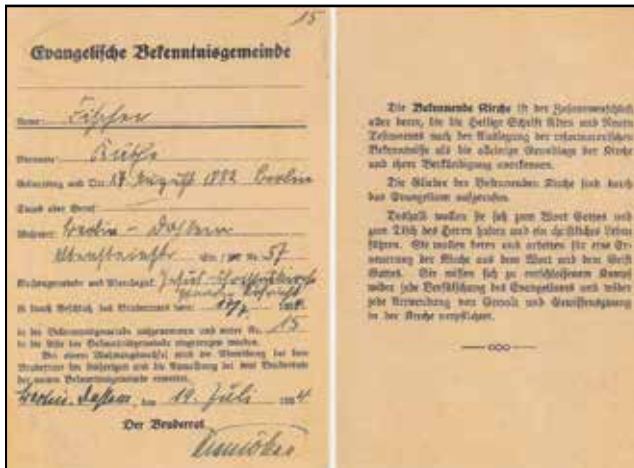 15
Evangelische Bekenntnisgemeinde
Name: Fischer
Vorname:
Geburtstag und Ort: 17 August 1882 Berlin
Stand oder Beruf:
Wohnort: Berlin - Dahlem
57
Kirchengemeinde und Pfarrbezirk:
ist durch Beschluß des Bruderrats vom
in die Bekenntnisgemeinde aufgenommen und unter Nr. 15
in die Liste der Bekenntnisgemeinde eingetragen worden.
Bei einem Wohnungswechsel wird die Abmeldung bei dem
Bruderrat der bisherigen und die Anmeldung bei dem Bruderrat
der neuen Bekenntnisgemeinde erwartet.
Berlin-Dahlem, den 19. Juli 1934
Der Bruderrat
Niemöller
Die Bekennende Kirche ist der Zusammenschluß
aller derer, die die Heilige Schrift Alten und Neuen
Testaments nach der Auslegung der reformatorischen
Bekenntnisse als die alleinige Grundlage der Kirche
und ihrer Verkündigung anerkennen.
Die Glieder der Bekennenden Kirche sind durch
das Evangelium aufgerufen.
Deshalb wollen sie sich zum Wort Gottes und
zum Tisch des Herrn halten und ein christliches Leben
führen. Sie wollen beten und arbeiten für eine Er-
neuerung der Kirche aus dem Wort und dem Geist
Gottes. Sie wissen sich zu entschlossenem Kampf
wider jede Verfälschung des Evangeliums und wider
jede Anwendung von Gewalt und Gewissenszwang
in der Kirche verpflichtet.